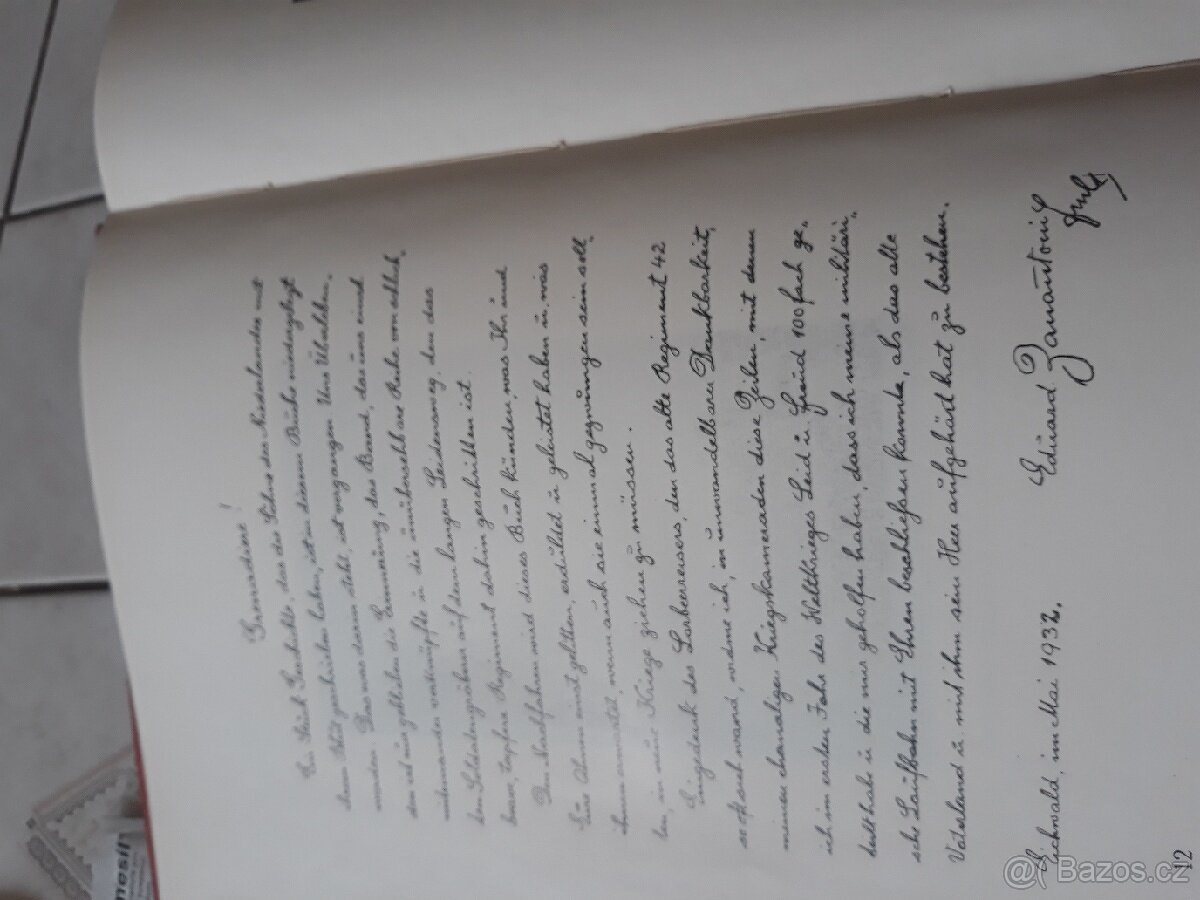 Grenadiere!
Ein Stück Geschichte, das die Söhne des Niederlandes mit
ihrem Blut geschrieben haben, ist in diesem Buche niedergelegt
worden. Das was darin steht, ist vergangen. Uns Überleben-
den ist geblieben die Erinnerung, das Band, das uns mit
einander verknüpfte in die unübersehbare Reihe von schlich-
ten Soldatengräbern auf dem langen Leidensweg, den das
brave, tapfere Regiment dahin geschritten ist.
Den Nachfahren wird dieses Buch künden, was Ihr und
Eure Ahnen einst gelitten, erduldet u. geleistet haben u. was
ihrer erwartet, wenn auch sie einmal gezwungen sein soll-
ten, in neue Kriege ziehen zu müssen.
Eingedenk des Lorbeerreisers, den das alte Regiment 42
sich wand, widme ich, in unwandelbarer Dankbarkeit,
meinen ehemaligen Kriegskameraden diese Zeilen, mit denen
ich im ersten Jahr des Weltkrieges Leid u. Freud 100 fach ge-
teilt hab u. die mir geholfen haben, dass ich meine militäri-
sche Laufbahn mit Ehren beschließen konnte, als das alte
Vaterland u. mit ihm sein Heer aufgehört hat zu bestehen.
Eichwald, im Mai 1932.
Eduard Zanantoni
12
@ Bazos.cz
nesin